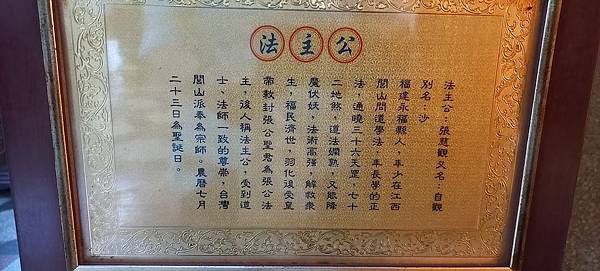 法主公
法主公：張慈觀又名：自觀
別名：沙
福建永福縣人，年少在江西
閭山問道學法，年長學的正
法，通曉三十六天罡，七十
二地煞，道法嫻熟，又能降
魔伏妖，法術高強，解救眾
生，福民濟世，羽化後受皇
帝敕封張公聖君為張公法
主，後人稱法主公，受到道
士、法師一致的尊崇，台灣
閭山派奉為宗師。農曆七月
二十三日為聖誕日。